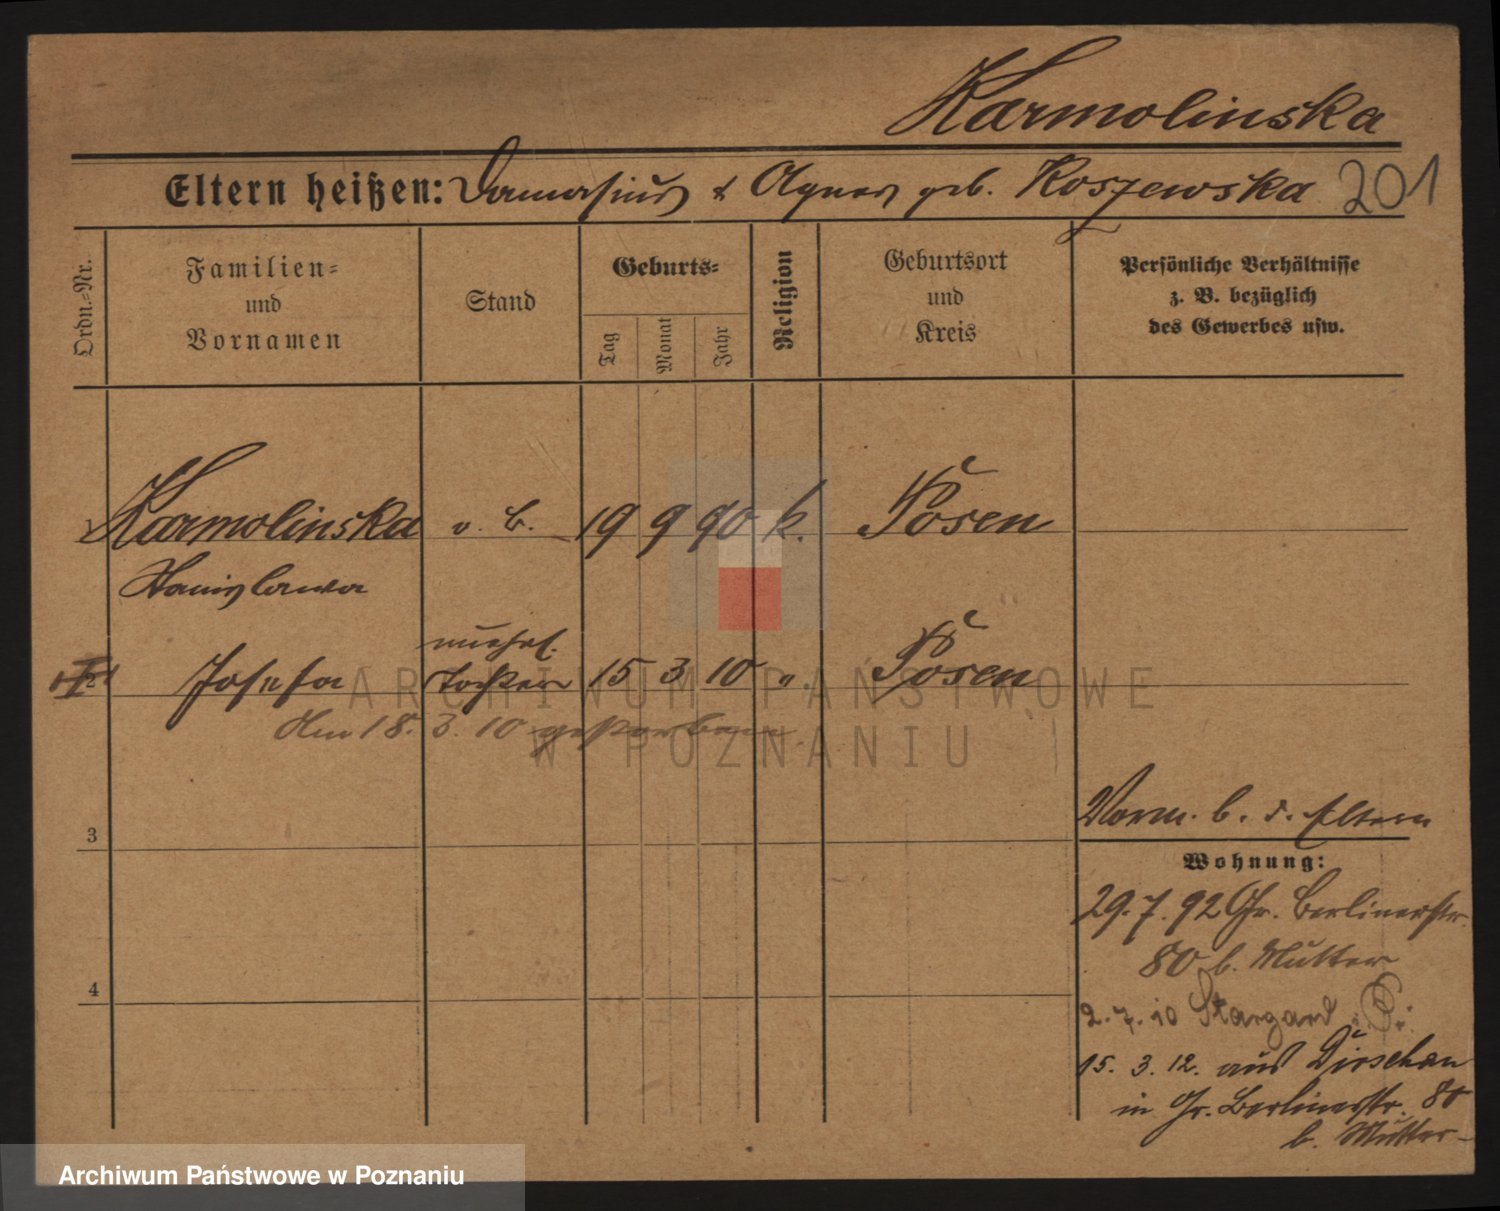 Karmolinska
Eltern heißen: Damasius & Agnes geb. Koszewska 201
Ordn.-Nr.
Familien-
und
Vornamen
Stand
Geburts-
Tag
Monat
Jahr
Religion
Geburtsort
und
Kreis
Persönliche Verhältnisse
z. B. bezüglich
des Gewerbes usw.
1 Karmolinska o. B. 19 9 90 k. Posen
Stanislawa
unehel.
2 Josefa Tochter 15 3 10 " Posen
Am 18. 3. 10 gestorben
3
Vorm. b. d. Eltern
Wohnung:
29. 7. 92 Gr. Berlinerstr.
80 b. Mutter
4
2. 7. 10 Stargard
15. 3. 12. aus Dirschau
in Gr. Berlinerstr. 80
b. Mutter
ARCHIWUM PAŃSTWOWE
W POZNANIU
Archiwum Państwowe w Poznaniu